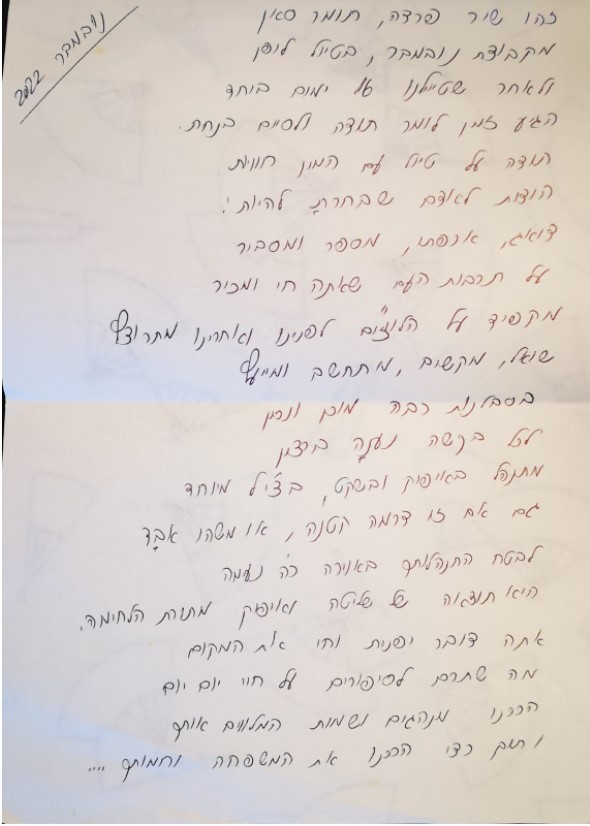 נובמבר 2022
זהו שיר פרדה, תומר סאן
מקבוצת נובמבר, בטיול ליפן
ולאחר שטיילנו 14 ימים ביחד
הגע זמן לומר תודה ולסיים בנחת.
תודה על טיול עם המון חוויות
הודות לאדם שבחרת להיות:
דואג, אכפתי, מספר ומסביר
על תרבות העם שאתה חי ומכיר
מקפיד על הלוז"ים לפנינו ואחרינו מתרוצץ
שואל, מקשיב, מתחשב ומייעץ
בסבלנות רבה מוכן ונכון
לכל בקשה נענה ברצון
מתנהל באיפוק ובשקט, בצ'יל מיוחד
גם אם זו דרמה קטנה, או משהו אבד
לבטח התנהלותך באוירה כה נעימה
היא תוצאה של שליטה ואיפוק מתורת הלחימה.
אתה דובר יפנית וחי את המקום
מה שתרם לסיפורים על חיי יום יום
הכרנו מנהגים ושמות המלווים אותך
הכרנו את המשפחה וחמותך ....